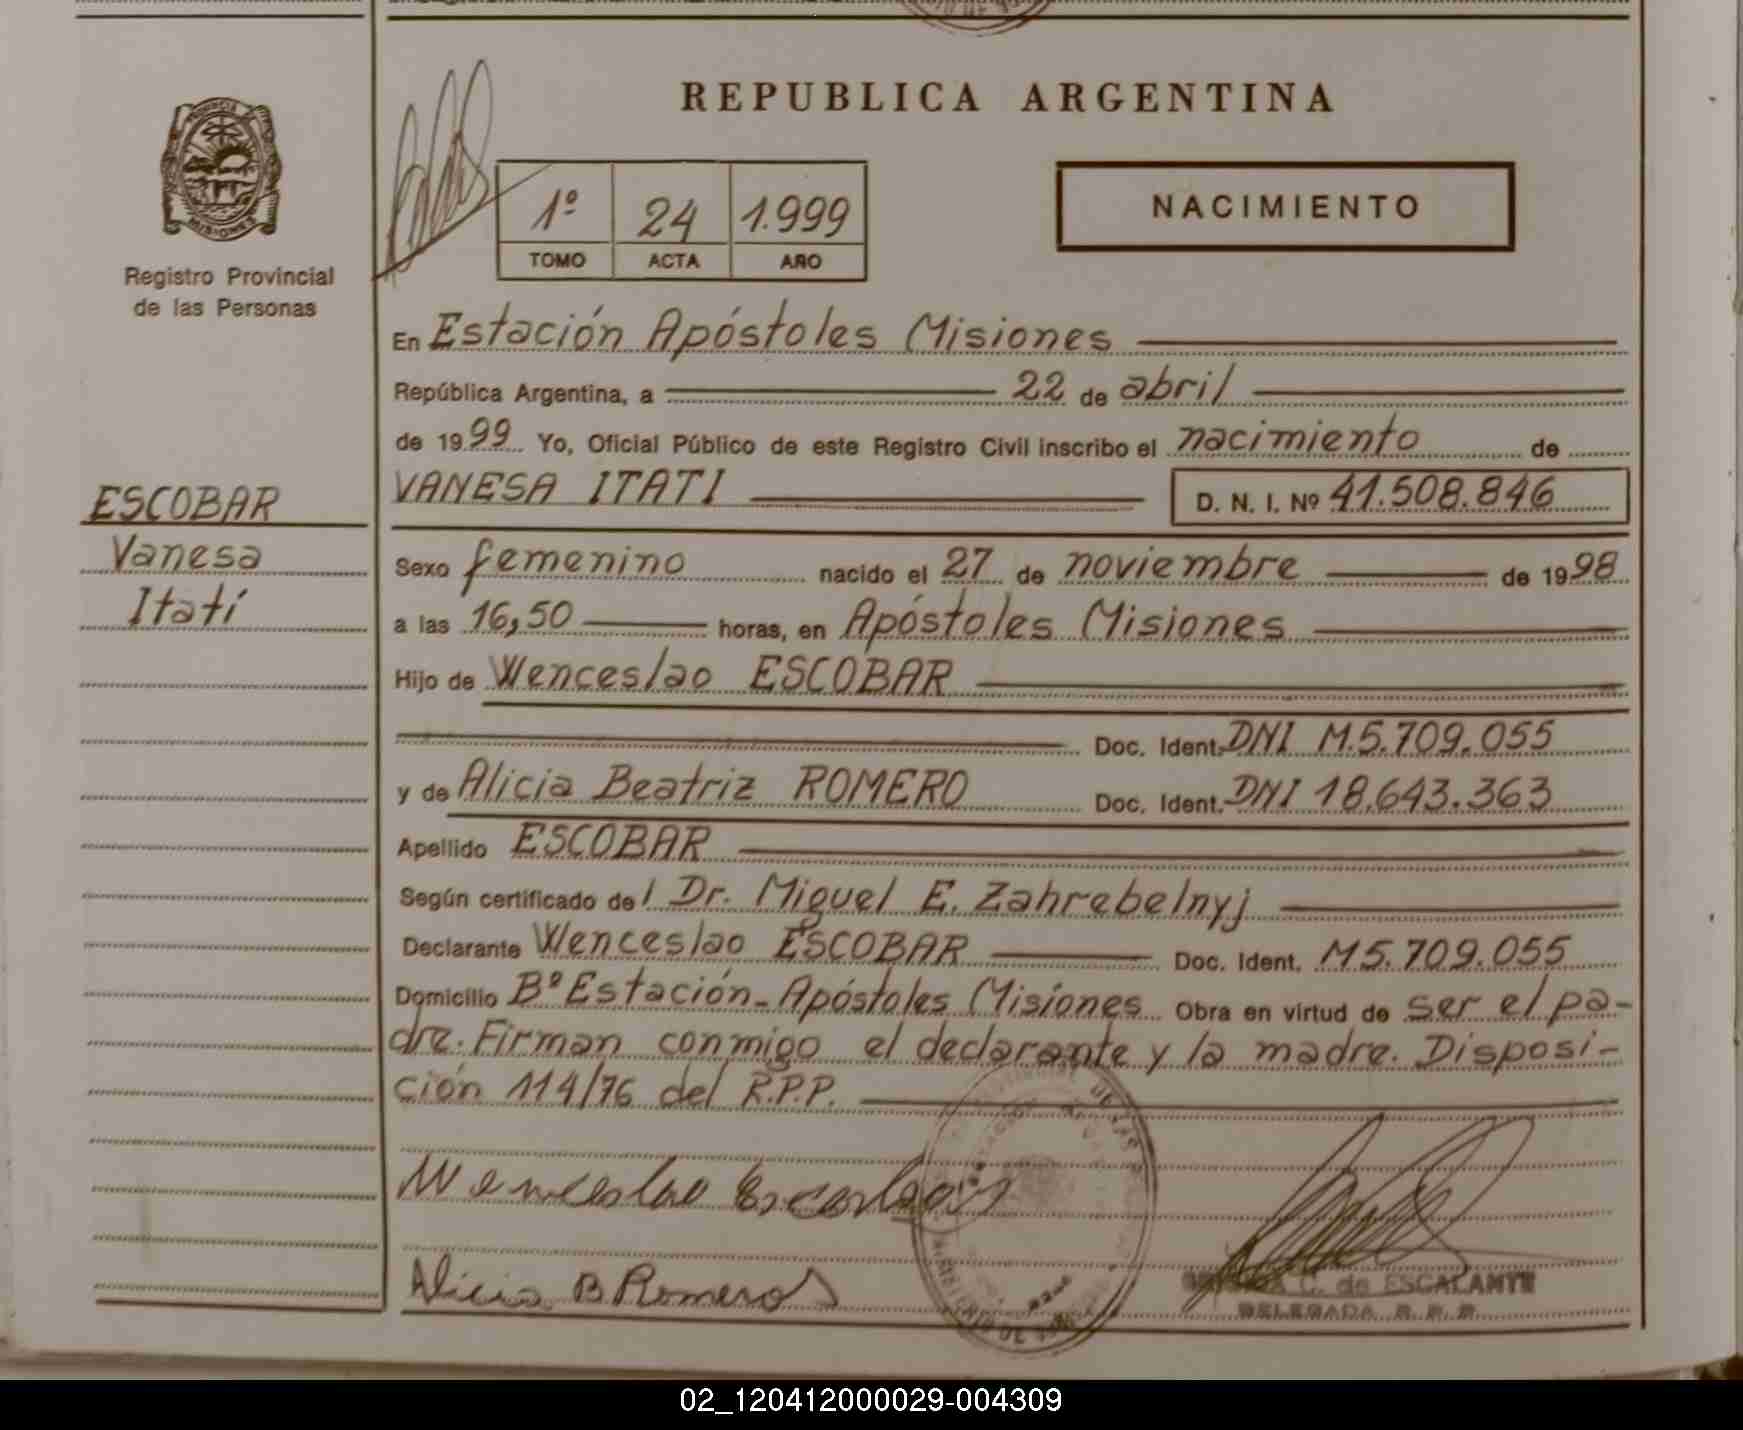 REPUBLICA ARGENTINA
PROVINCIA
MISIONES
Registro Provincial
de las Personas
1º 24 1.999
TOMO ACTA AÑO
NACIMIENTO
ESCOBAR
Vanesa
Itatí
En Estación Apóstoles Misiones
República Argentina, a 22 de abril
de 1999 Yo, Oficial Público de este Registro Civil inscribo el nacimiento de
VANESA ITATI D. N. I. Nº 41.508.846
Sexo femenino nacido el 27 de noviembre de 1998
a las 16,50 horas, en Apóstoles Misiones
Hijo de Wenceslao ESCOBAR
Doc. Ident. DNI M.5.709.055
y de Alicia Beatriz ROMERO Doc. Ident. DNI 18.643.363
Apellido ESCOBAR
Según certificado del Dr. Miguel E. Zahrebelnyj
Declarante Wenceslao ESCOBAR Doc. Ident. M5.709.055
Domicilio Bº Estación - Apóstoles Misiones Obra en virtud de ser el pa-
dre. Firman conmigo el declarante y la madre. Disposi-
ción 114/76 del R.P.P.
Wenceslao Escobar
Alicia B Romero
C. de ESCALANTE
DELEGADA R. P. P.
02_120412000029-004309